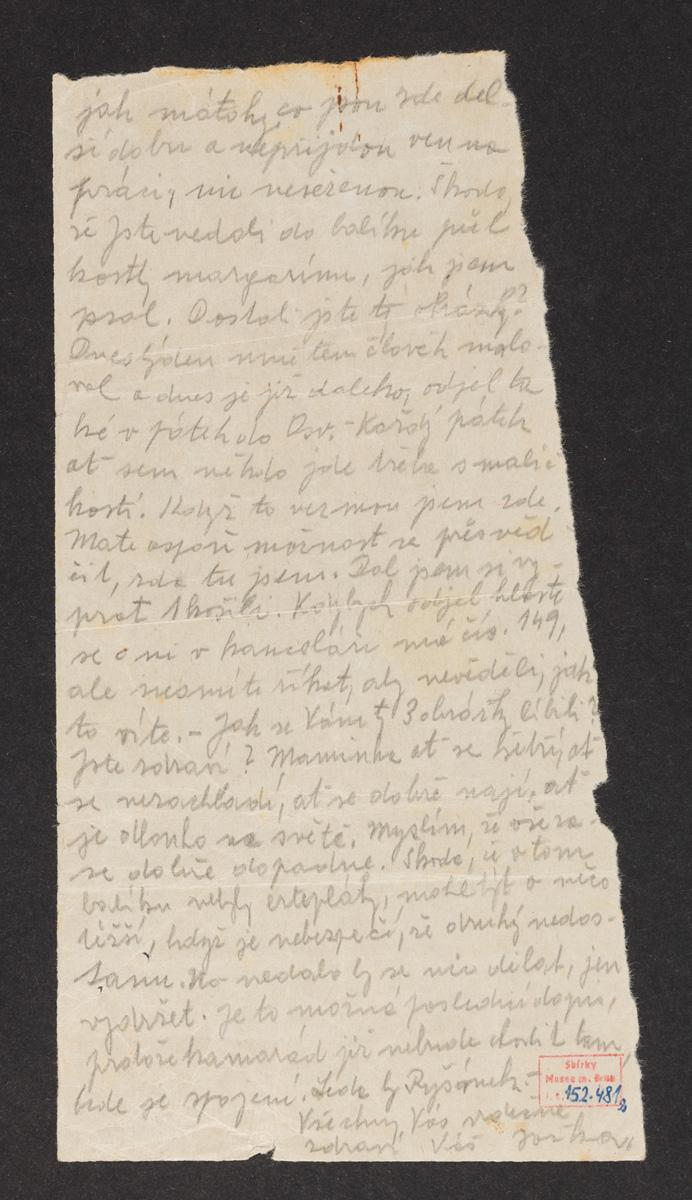 jak mátohy, co jsou zde del-
ší dobu a nepřijdou ven na
práci, nic neseženou. Škoda,
že jste nedali do balíku půl
kostky margarinu, jak jsem
psal. Dostali jste ty obrázky?
Dnes týden mně ten člověk malo-
val a dnes je již daleko, odjel ta
ké v pátek do Osv. - Každý pátek
ať sem někdo jde třeba s malič
kostí. Když to vezmou jsem zde.
Máte aspoň možnost se přesvěd
čit, zda tu jsem. Dal jsem si vy-
prat 1 košili. Kdybych odjel hlaste
se o ni v kanceláři má čís. 149,
ale nesmíte říkat, aby nevěděli, jak
to víte. - Jak se Vám ty 3 obrázky líbili?
Jste zdraví? Maminka ať se šetří, ať
se nezachladí, ať se dobře nají, ať
je dlouho na světě. Myslím, že vše za-
se dobře dopadne. Škoda, že v tom
balíku nebyly ertepláky, mohl být o něco
těžší, když je nebezpečí, že druhý nedos-
tanu. No nedalo by se nic dělat, jen
vydržet. Je to možná poslední dopis,
protože kamarád již nebude chodit tam
bude se spojení. Leda by Ryšánek. -
Všechny Vás
zdraví Váš Jožka.
Sbírky
Musea m. Brna
i. č. 152.481